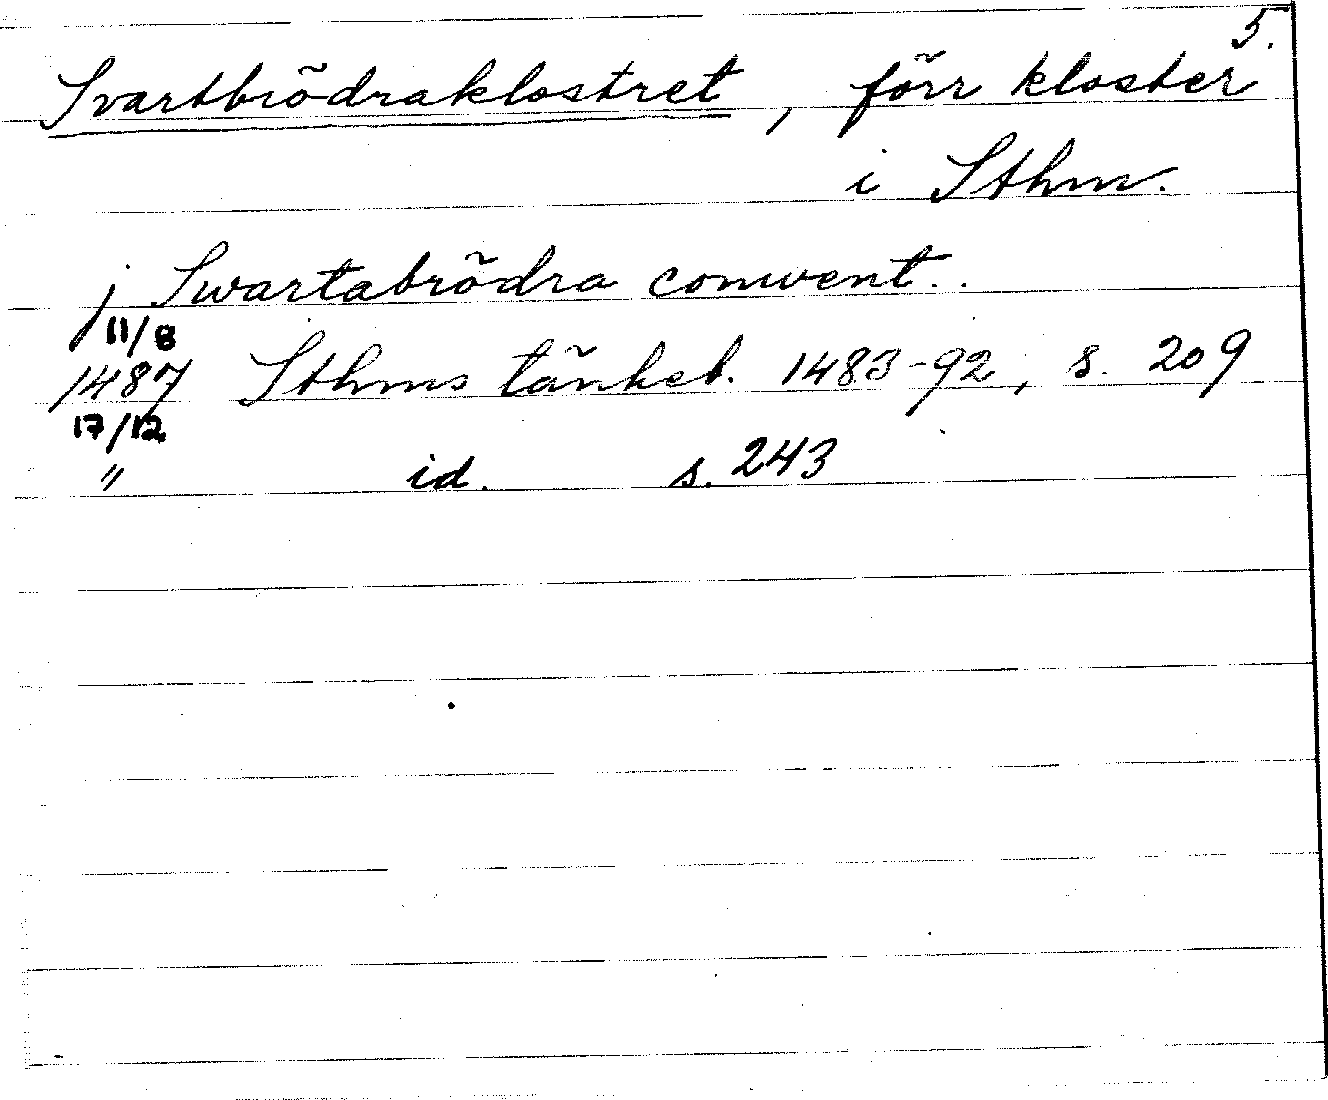 5.
Svartbrödraklostret, förr kloster
i Sthm.
j Swartabrödra conwent..
11/8
1487 Sthms tänkeb. 1483-92, s. 209
17/12
" id. s. 243